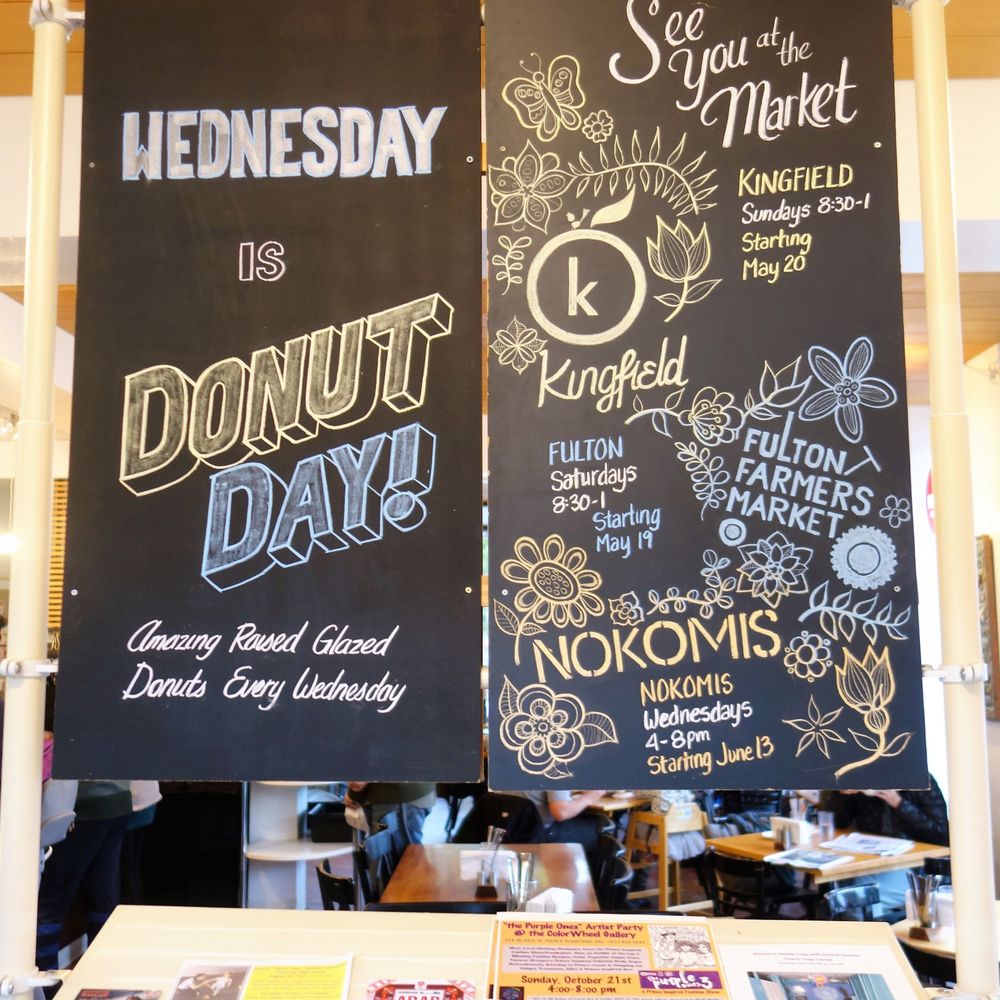 WEDNESDAY
IS
DONUT
DAY!
Amazing Raised Glazed
Donuts Every Wednesday
See
You at the
Market
KINGFIELD
Sundays 8:30-1
Starting
May 20
k
Kingfield
FULTON
Saturdays
8:30-1
Starting
May 19
FULTON
FARMERS
MARKET
NOKOMIS
NOKOMIS
Wednesdays
4-8pm
Starting June 13
"the Purple Ones" Artist Party
@ the ColorWheel Gallery
Sunday, October 21st
4:00-8:00 pm